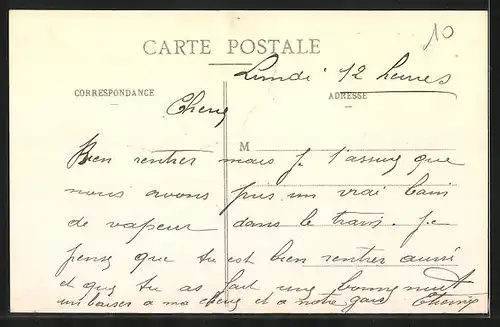 10
CARTE POSTALE
Lundi 12 heures
CORRESPONDANCE
ADRESSE
M
Bien rentrer mais Je t'assure que
nous avons pris un vrai bain
de vapeur dans le train. Je
pense que tu est bien rentrer aussi
et que tu as fait une bonne nuit
un baiser a ma et a notre